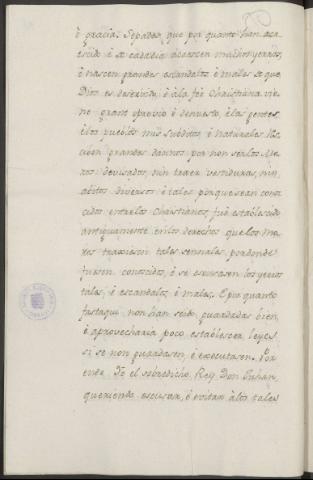 è gracia: Sepades, que por quanto han aca-
escido è de cada dia acaescen muchos yerros,
è nascen grandes escandalos è males de que
Dios es deservido, è à la feè Christiana vie-
ne grant oprovio è denuesto, è las gentes,
è los pueblos mis subditos, è naturales res-
ciben grandes dannos por non ser los Mo-
ros devisados, nin traer vestiduras, nin
abitos diversos è tales porque sean conos-
cidos entre los Christianos, fuè establescido
antiguamente en los derechos que los Mo-
ros traxiesen tales sennales, por donde
fuesen conoscidos, è se escusasen los yerros
tales, è escandalos, è males. E por quanto
fasta qui non han seido guardadas bien,
è aprovecharia poco establescer leyes
si se non guardasen, è executasen. Por
ende Yo el sobredicho Rey Don Juhan,
queriendo escusar, è evitar à los tales